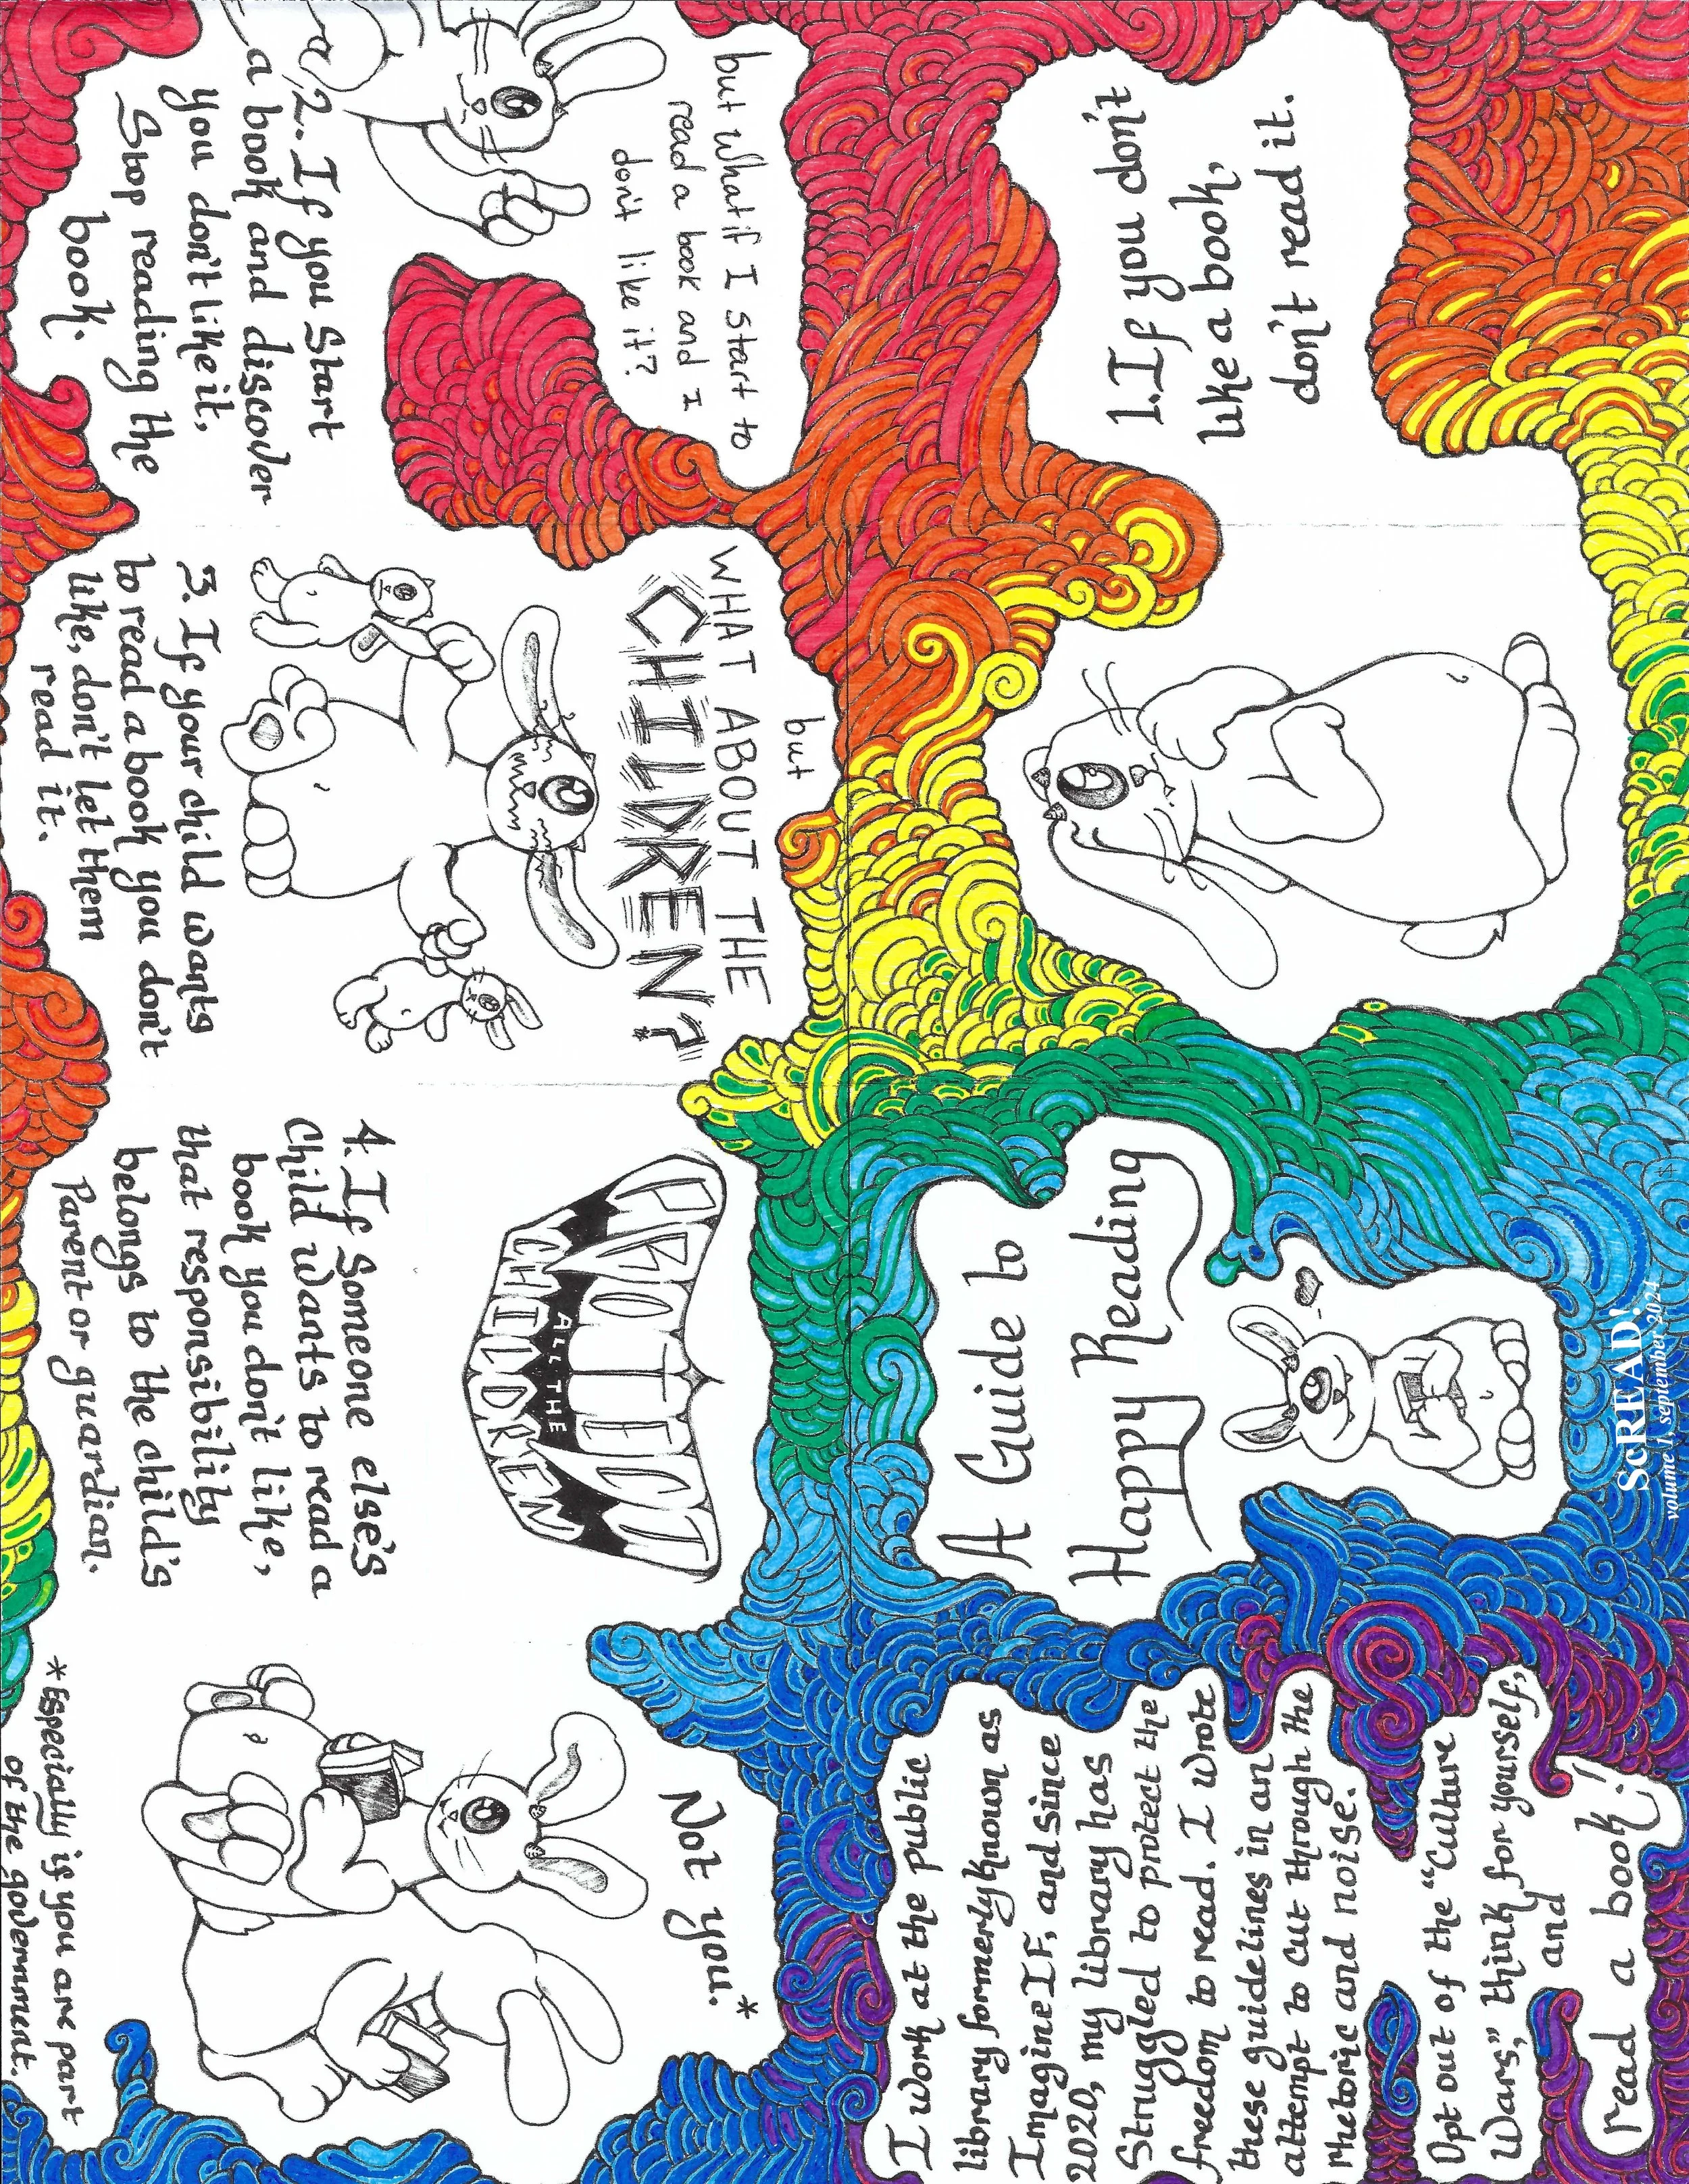 A Guide to
Happy Reading
ScREAD!
volume 1, september 2024
1. If you don't
like a book,
don't read it.
but what if I start to
read a book and I
don't like it?
2. If you start
a book and discover
you don't like it,
Stop reading the
book.
but
WHAT ABOUT THE
CHILDREN?
3. If your child wants
to read a book you don't
like, don't let them
read it.
ABOUT
ALL THE
CHILDREN
4. If someone else's
Child wants to read a
book you don't like,
that responsibility
belongs to the child's
Parent or guardian.
Not you.*
*Especially if you are part
of the government.
I work at the public
library formerly known as
ImagineIF, and since
2020, my library has
Struggled to protect the
freedom to read. I wrote
these guidelines in an
attempt to cut through the
rhetoric and noise.
Opt out of the "Culture
Wars," think for yourself,
and
read a book!